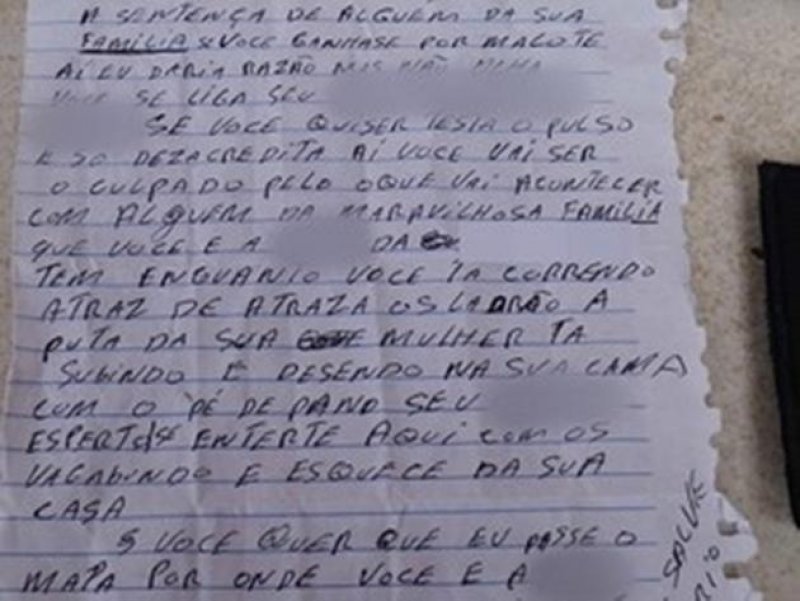 A SENTENÇA DE ALGUÉM DA SUA
FAMÍLIA SE VOCE GANHASE POR MALOTE
AÍ EU DARIA RAZÃO MAS NÃO
VOCE SE LIGA SEU
SE VOCE QUISER TESTA O PULSO
E SO DEZACREDITA AI VOCE VAI SER
O CULPADO PELO OQUE VAI ACONTECER
COM ALGUEM DA MARAVILHOSA FAMILIA
QUE VOCE E A DA
TEM ENQUANTO VOCE TA CORRENDO
ATRAZ DE ATRAZA OS LADRÃO A
PUTA DA SUA MULHER TA
SUBINDO E DESENDO NA SUA CAMA
COM O PÉ DE PANO SEU
ESPERTO ENTERTE AQUI COM OS
VAGABUNDO E ESQUECE DA SUA
CASA
S VOCE QUER QUE EU PASSE O
MAPA POR ONDE VOCE E A
SALVE